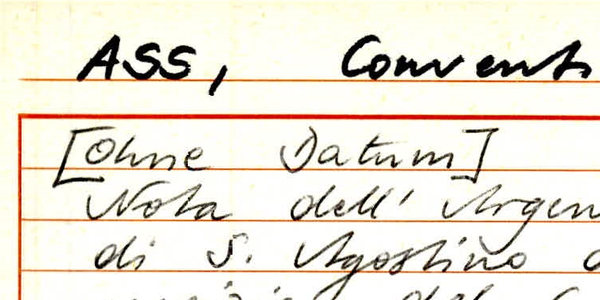 ASS, Conventi
[Ohne Datum]
Nota dell' Argen
di S. Agostino d
della